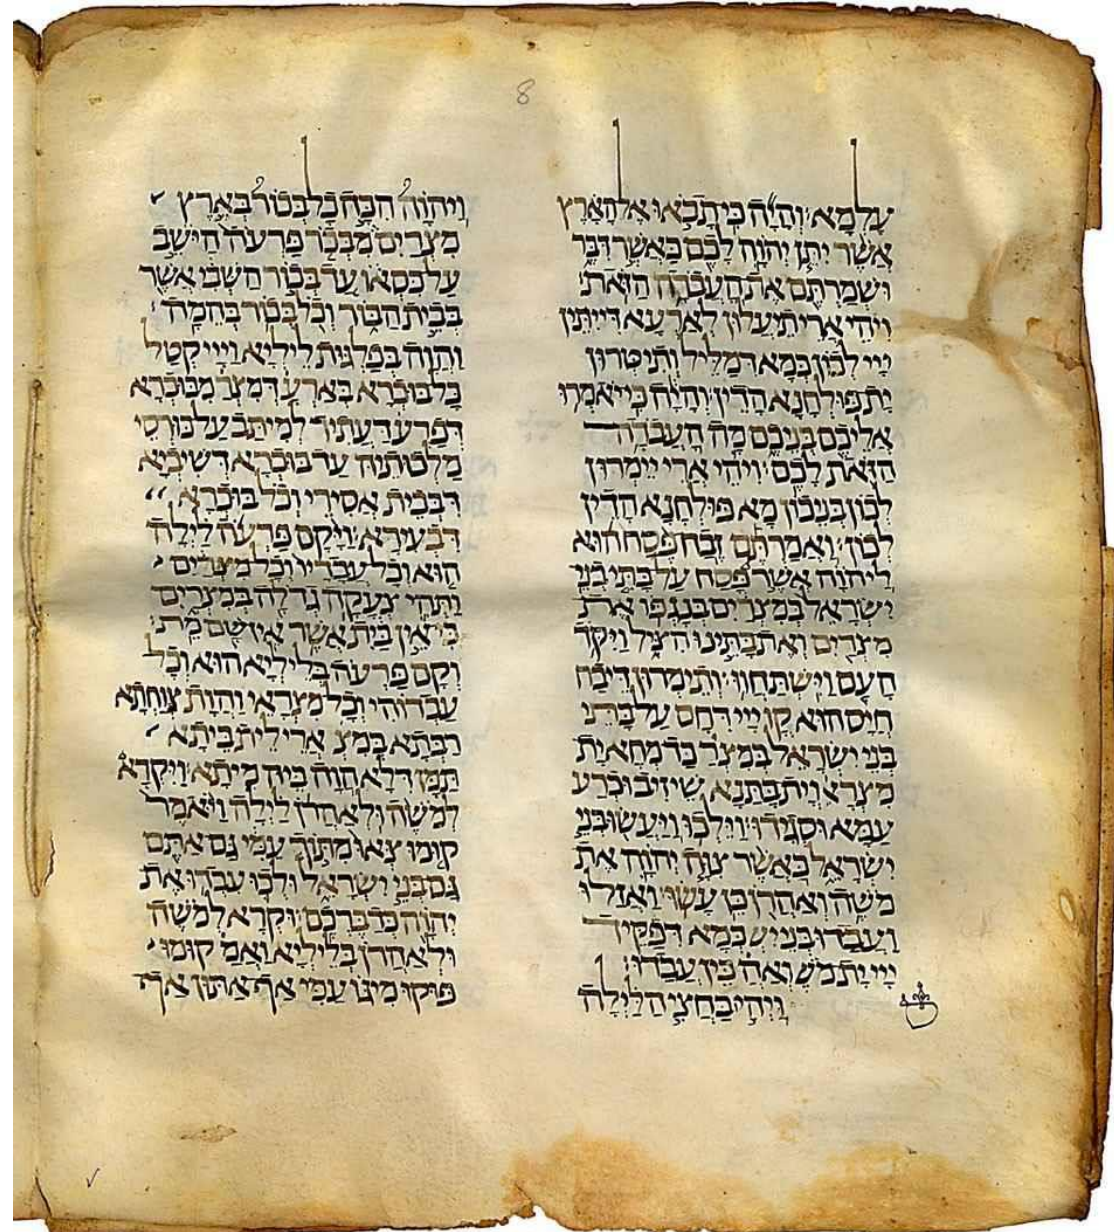 8
עלמא והיה כי תבאו אל הארץ
אשר יתן יהוה לכם כאשר דבר
ושמרתם את העבדה הזאת
ויהי ארי תיעלון לארעא דייתין
ייי לכון כמא דמליל ותיטרון
ית פולחנא הדין והיה כי יאמרו
אליכם בניכם מה העבדה
הזאת לכם ויהי ארי יימרון
לכון בניכון מא פולחנא הדין
לכון ואמרתם זבח פסח הוא
ליהוה אשר פסח על בתי בני
ישראל במצרים בנגפו את
מצרים ואת בתינו הציל ויקד
העם וישתחוו ותימרון דיבח
חיס הוא קד ייי דחס על בתי
בני ישראל במצר כד מחא ית
מצראי וית בתנא שיזיב וכרע
עמא וסגידו וילכו ויעשו בני
ישראל כאשר צוה יהוה את
משה ואהרן כן עשו ואזלו
ועבדו בני יש כמא דפקיד
ייי ית מש ואה כין עבדו
ויהי בחצי הלילה
ויהוה הכה כל בכור בארץ
מצרים מבכר פרעה הישב
על כסאו עד בכור השבי אשר
בבית הבור וכל בכור בהמה
והוה בפלגות ליליא וייי קטל
כל בוכרא בארע דמצר מבוכרא
דפרעה דעתיד למיתב על כורסי
מלכותיה עד בוכרא דשיביא
דבבית אסירי וכל בוכרא
דבעירא ויקם פרעה לילה
הוא וכל עבדיו וכל מצרים
ותהי צעקה גדלה במצרים
כי אין בית אשר אין שם מת
וקם פרעה בליליא הוא וכל
עבדוהי וכל מצראי והות צוחתא
רבתא במצ ארי לית ביתא
תמן דלא הוה ביה מיתא ויקרא
למשה ולאהרן לילה ויאמר
קומו צאו מתוך עמי גם אתם
גם בני ישראל ולכו עבדו את
יהוה כדברכם וקרא למשה
ולאהרן בליליא ואמ קומו
פוקו מיגו עמי אף אתון אף